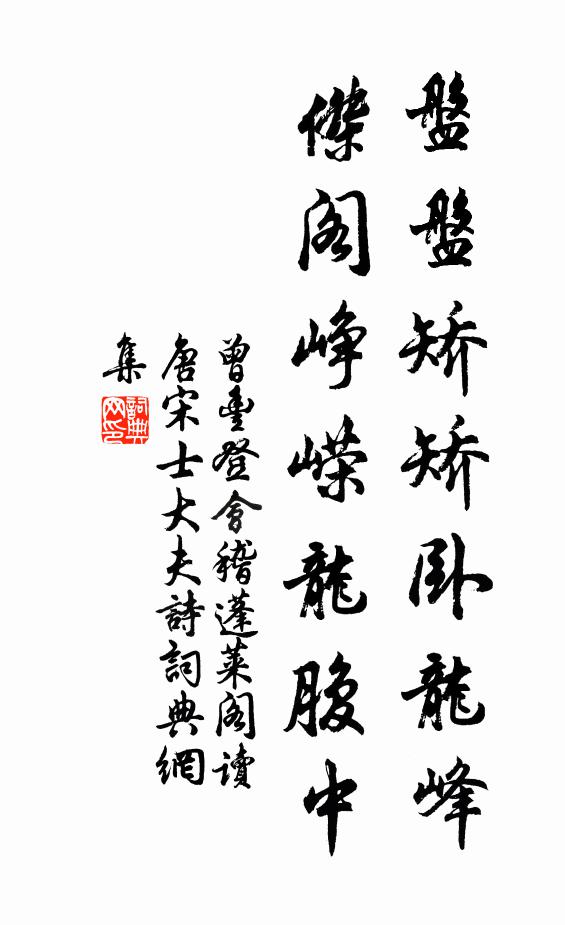 盤盤矯矯卧龍峰
傑閣峥嶸龍腹中
曾豊登會稽蓬莱閣读
唐宋士大夫詩詞典網
集
詞典网印